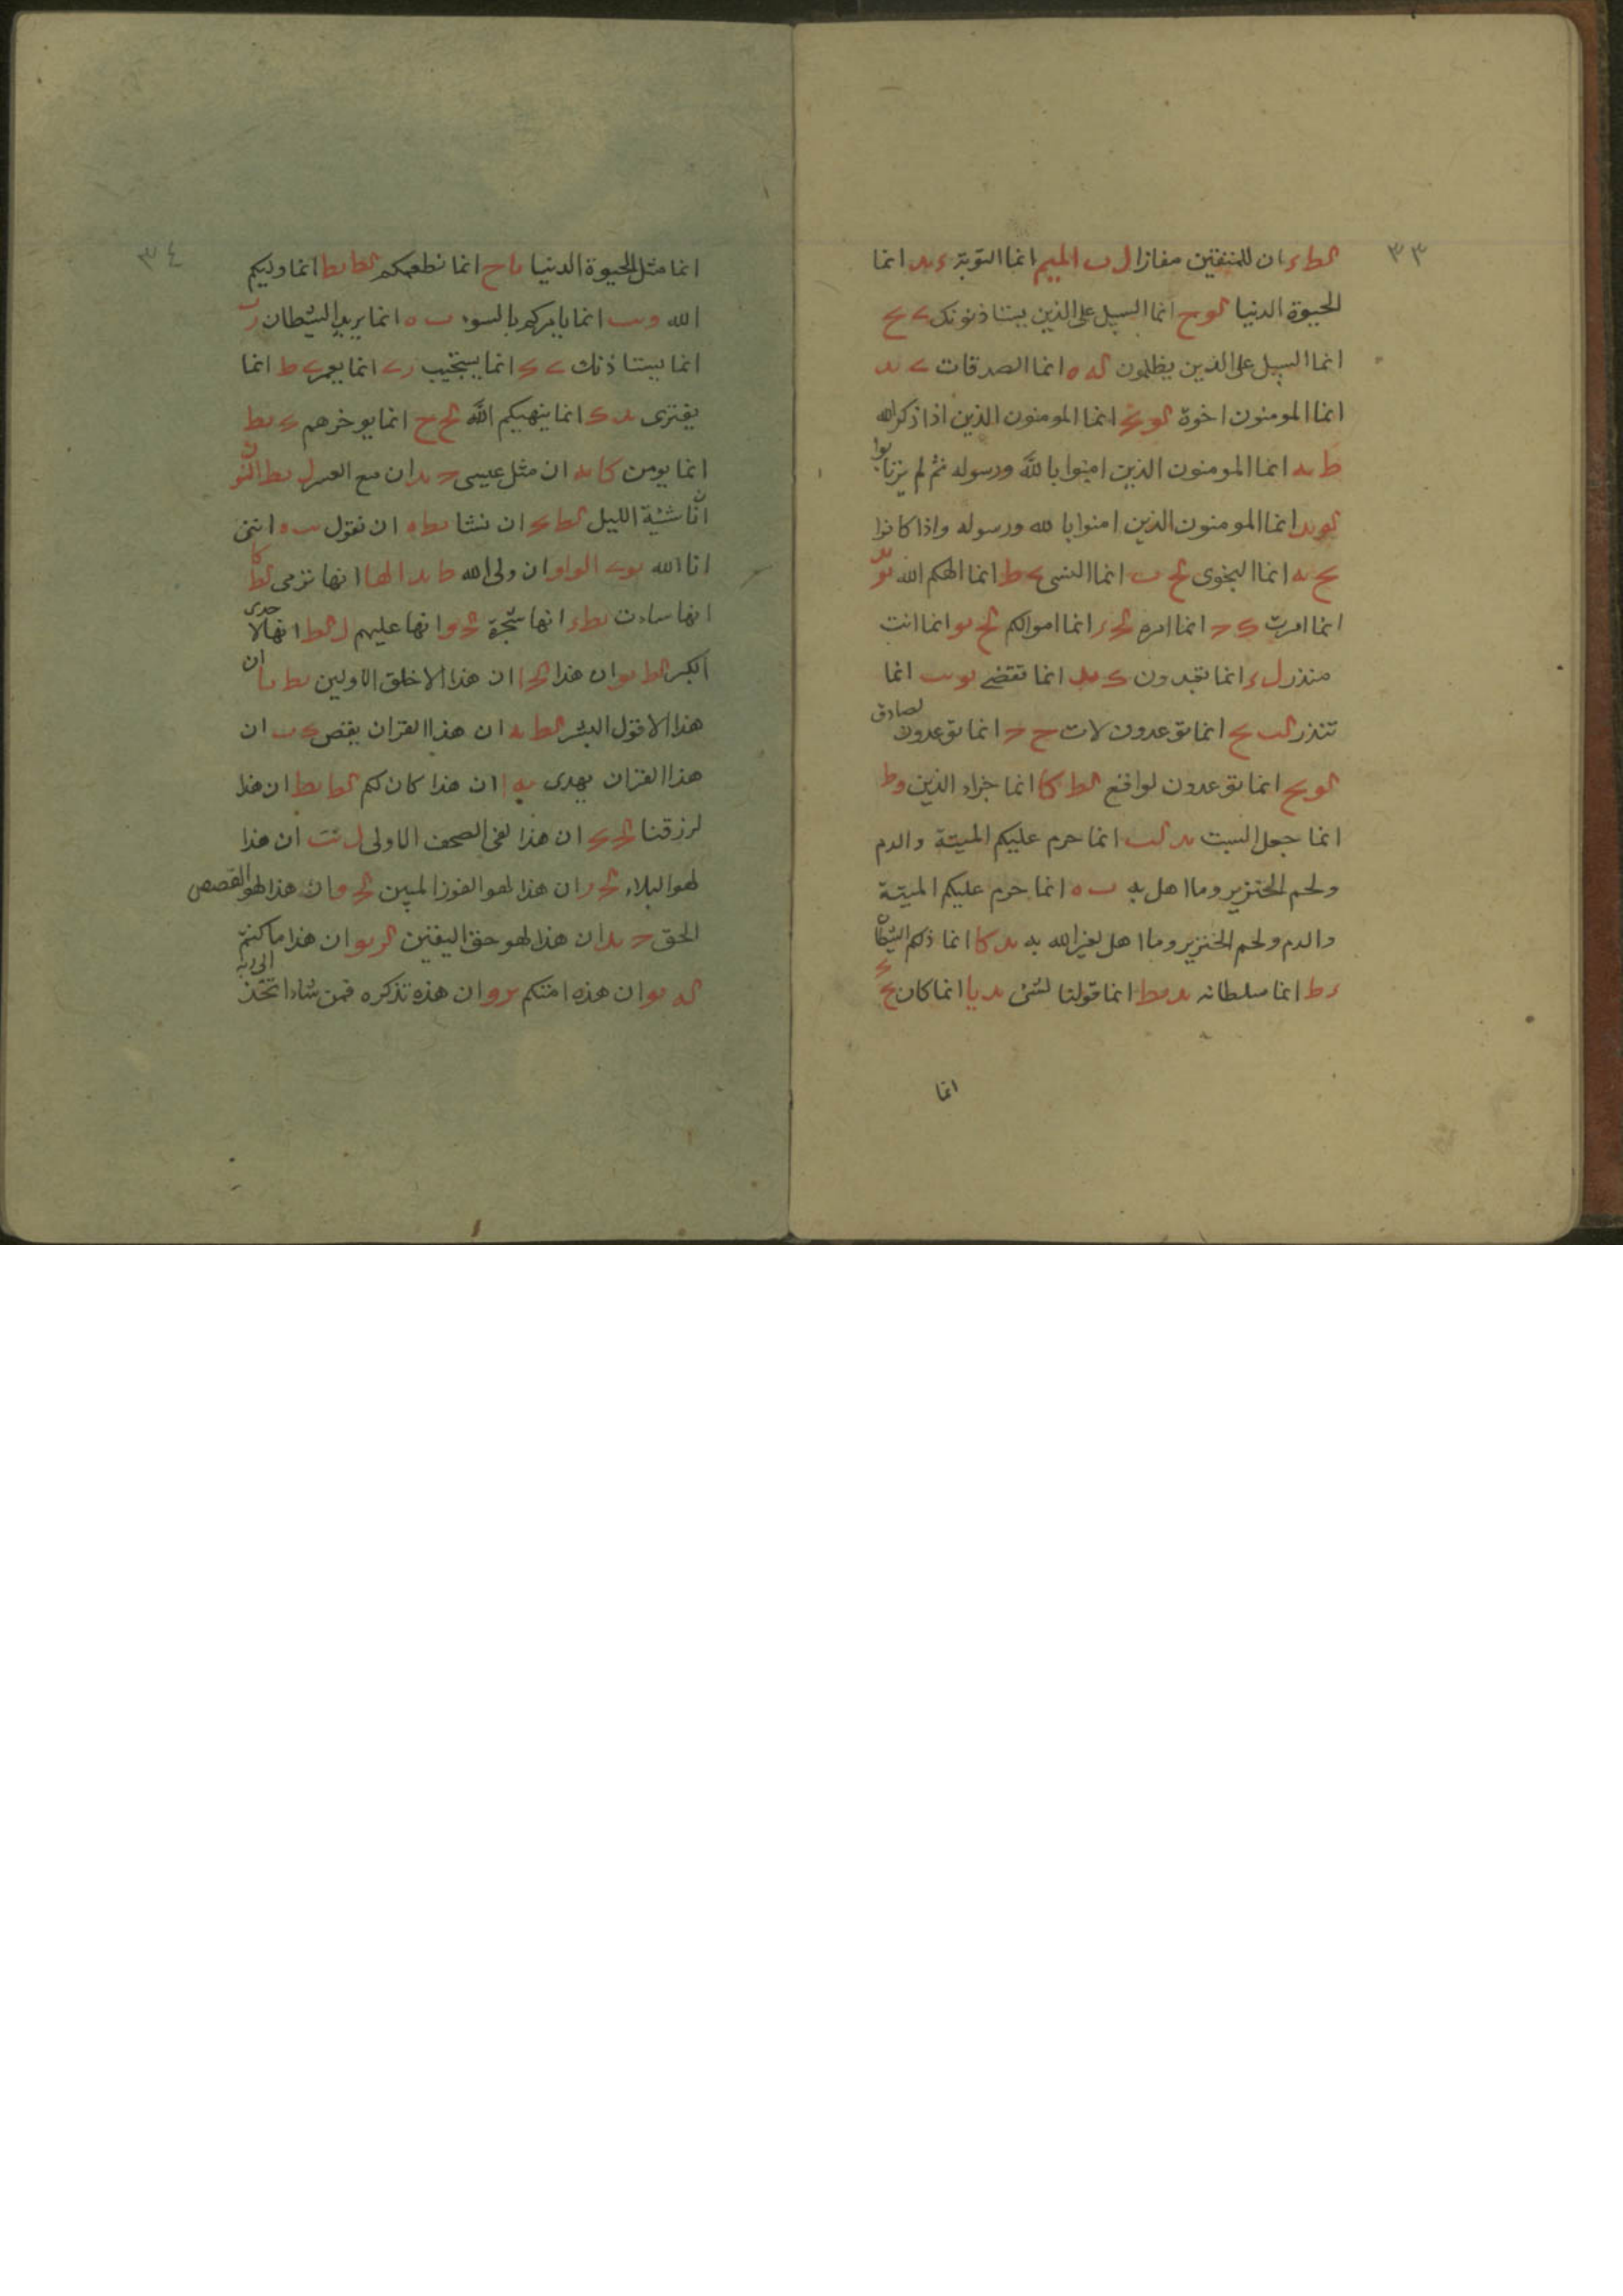 ٣٣
لط ء ان للمتقين مفازا ل ب الميم انما التوبة ء ىد انما
الحيوة الدنيا لو ح انما السبيل على الذين يستاذنونك ے ح
انما السبيل على الذين يظلمون له ه انما الصدقات ے ىد
انما المومنون اخوة لو انما المومنون الذين اذا ذكر الله
ط ىه انما المومنون الذين امنوا بالله ورسوله ثم لم يرتابوا
لو ىد انما المومنون الذين امنوا بالله ورسوله واذا كانوا
ح ىه انما النجوى ب انما النسى ط انما الهكم الله
انما امرت انما امره انما اموالكم ىو انما انت
منذر ل ء انما تعبدون ك انما تقضے ىو ىب انما
تنذر لب انما توعدون لات ح انما توعدون لصادق
لو انما توعدون لواقع لط كا انما جزاء الذين وط
انما جعل السبت ىد لب انما حرم عليكم الميتة والدم
ولحم الخنزير وما اهل به ب ه انما حرم عليكم الميتة
والدم ولحم الخنزير وما اهل لغير الله به ىد كا انما ذلكم الشيطان
ء ط انما سلطانه ىد ىط انما قولنا لشئ ىد يا انما كان
انما
٣٤
انما مثل الحيوة الدنيا يا ح انما نطعمكم لط ىط انما وليكم
الله و ىب انما يامركم بالسوء ب ه انما يريد الشيطان ر ب
انما يستاذنك ے انما يستجيب ر ے انما يعمر ے ط انما
يفترى ىد ك انما ينهيكم الله ح انما يوخرهم ىط
انما يومن كا ىه ان مثل عيسى ىد ان مع العسر ل ىط النون
ان ناشئة الليل لط ان نشا ىط ه ان نقول ىب ه اننى
انا الله ىو ے الواو ان ولى الله ط ىد الها انها ترمى لط كا
انها ساءت ىط ء انها شجرة ىو انها عليهم ل لط انها لاحدى
الكبر لط ىو ان هذا ا ان هذا الا خلق الاولين ىط ىا ان
هذا الا قول البشر لط ىه ان هذا القران يقص ب ان
هذا القران يهدى ىه ا ان هذا كان لكم لط ىط ان هذا
لرزقنا ان هذا لفى الصحف الاولى ل ىب ان هذا
لهو البلاء ر ان هذا لهو الفوز المبين و ان هذا لهو القصص
الحق ىد ان هذا لهو حق اليقين لر ىو ان هذا ما كنتم
له ىو ان هذه امتكم ىر و ان هذه تذكره فمن شاء اتخذ الى ربه